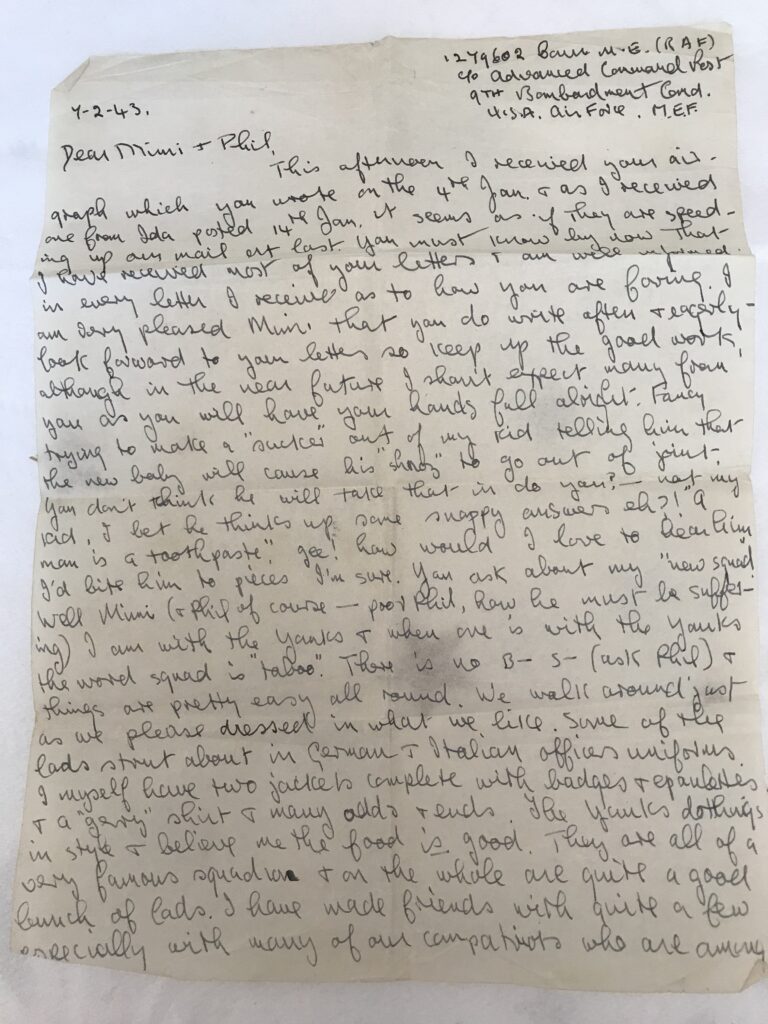 1279602 Barr M.E. (RAF)
c/o Advanced Command Post
9TH Bombardment Comd.
U.S.A. Air Force. M.E.F.
7-2-43.
Dear Mimi & Phil,
This afternoon I received your air-
graph which you wrote on the 4th Jan. & as I received
one from Ida posted 14th Jan. it seems as if they are speed-
ing up our mail at last. You must know by now that
I have received most of your letters & am well informed
in every letter I receive as to how you are faring. I
am very pleased Mimi that you do write often & eagerly
look forward to your letters so keep up the good work,
although in the near future I shan't expect many from
you as you will have your hands full alright. Fancy
trying to make a "sucker" out of my kid telling him that
the new baby will cause his "shnoz" to go out of joint.
You don't think he will take that in do you? — not my
kid, I bet he thinks up some snappy answers eh?! "A
man is a toothpaste", gee! how would I love to hear him
I'd bite him to pieces I'm sure. You ask about my "new squad"
Well Mimi (& Phil of course — poor Phil, how he must be suffer-
ing) I am with the Yanks & when one is with the Yanks
the word squad is "taboo". There is no B— S— (ask Phil) &
things are pretty easy all round. We walk around just
as we please dressed in what we like. Some of the
lads strut about in German & Italian officers uniforms.
I myself have two jackets complete with badges & epaulettes
& a "gerry" shirt & many odds & ends. The Yanks do things
in style & believe me the food is good. They are all of a
very famous squadron & on the whole are quite a good
bunch of lads. I have made friends with quite a few
especially with many of our compatriots who are among